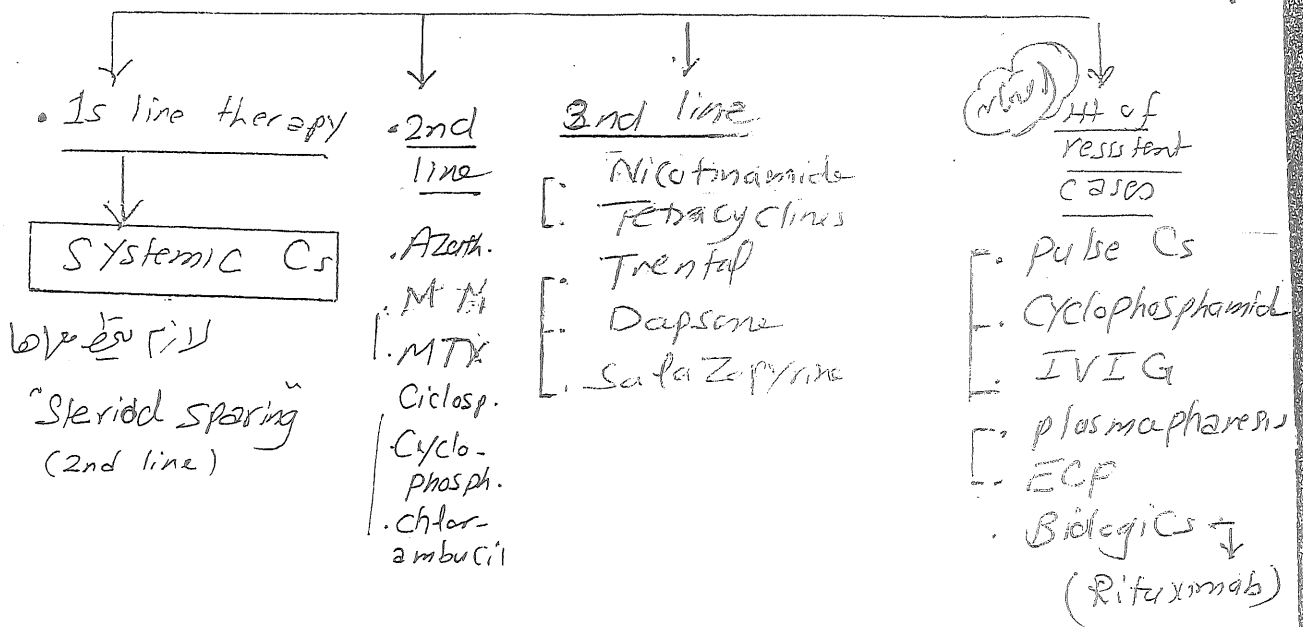 . 1s line therapy
Systemic Cs
لازم نعطي معاها
"Steriod sparing"
(2nd line)
. 2nd
line
. Azath.
. MM
. MTX
Ciclosp.
. Cyclo-
phosph.
. chlor-
ambucil
3nd line
. Nicotinamide
. Tetracyclines
. Trental
. Dapsone
. Salazopyrine
ttt of
resistent
cases
. Pulse Cs
. Cyclophosphamid
. IVIG
. plasmapharesis
. ECP
. Biologics
(Rituximab)